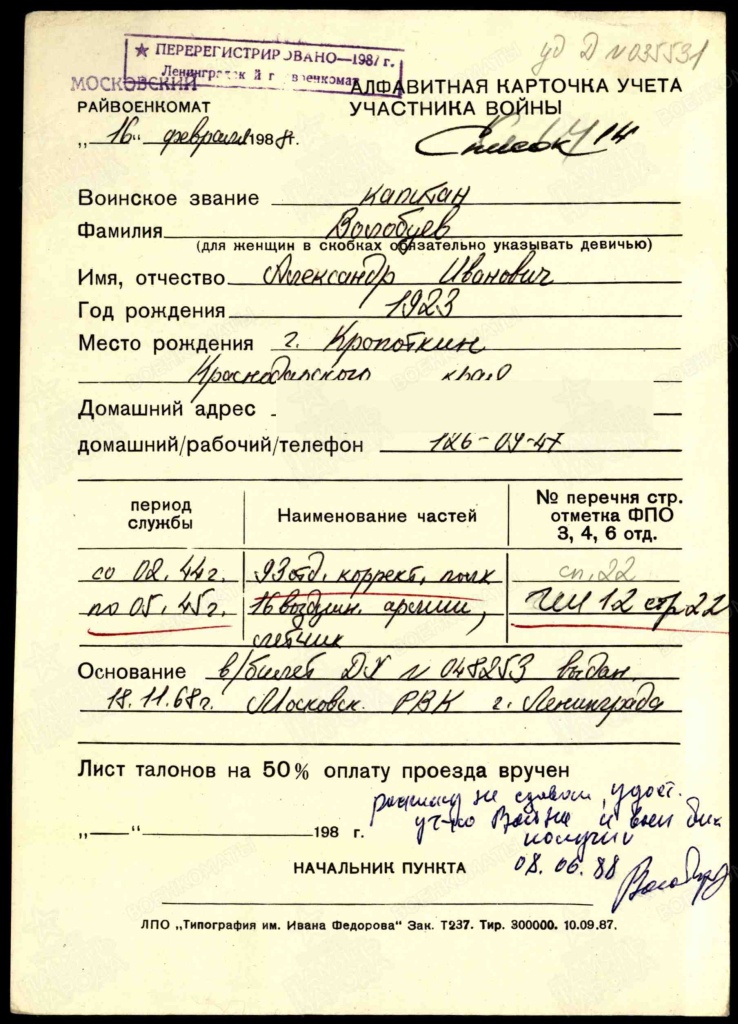 уд Д №035531
★ ПЕРЕРЕГИСТРИРОВАНО—1987 г.
Ленинградск й г военкомат
МОСКОВСКИЙ
РАЙВОЕНКОМАТ
„16“ февраля 1988 г.
АЛФАВИТНАЯ КАРТОЧКА УЧЕТА
УЧАСТНИКА ВОЙНЫ
Список 14
Воинское звание капитан
Фамилия Волобуев
(для женщин в скобках обязательно указывать девичью)
Имя, отчество Александр Иванович
Год рождения 1923
Место рождения г. Кропоткин
Краснодарского края
Домашний адрес
домашний/рабочий/телефон 126-09-47
период службы
Наименование частей
№ перечня стр. отметка ФПО 3, 4, 6 отд.
со 02.44г. 93 отд. коррект. полк сп. 22
по 05.45г. 16 воздушн. армии, ГШ 12 стр 22
летчик
Основание в/билет ДХ № 048253 выдан
18.11.68г. Московск. РВК г. Ленинграда
Лист талонов на 50% оплату проезда вручен
удост.
уч-ка Войны и
получил
„—“ 198 г.
08.06.88
НАЧАЛЬНИК ПУНКТА
ЛПО „Типография им. Ивана Федорова“ Зак. Т237. Тир. 300000. 10.09.87.